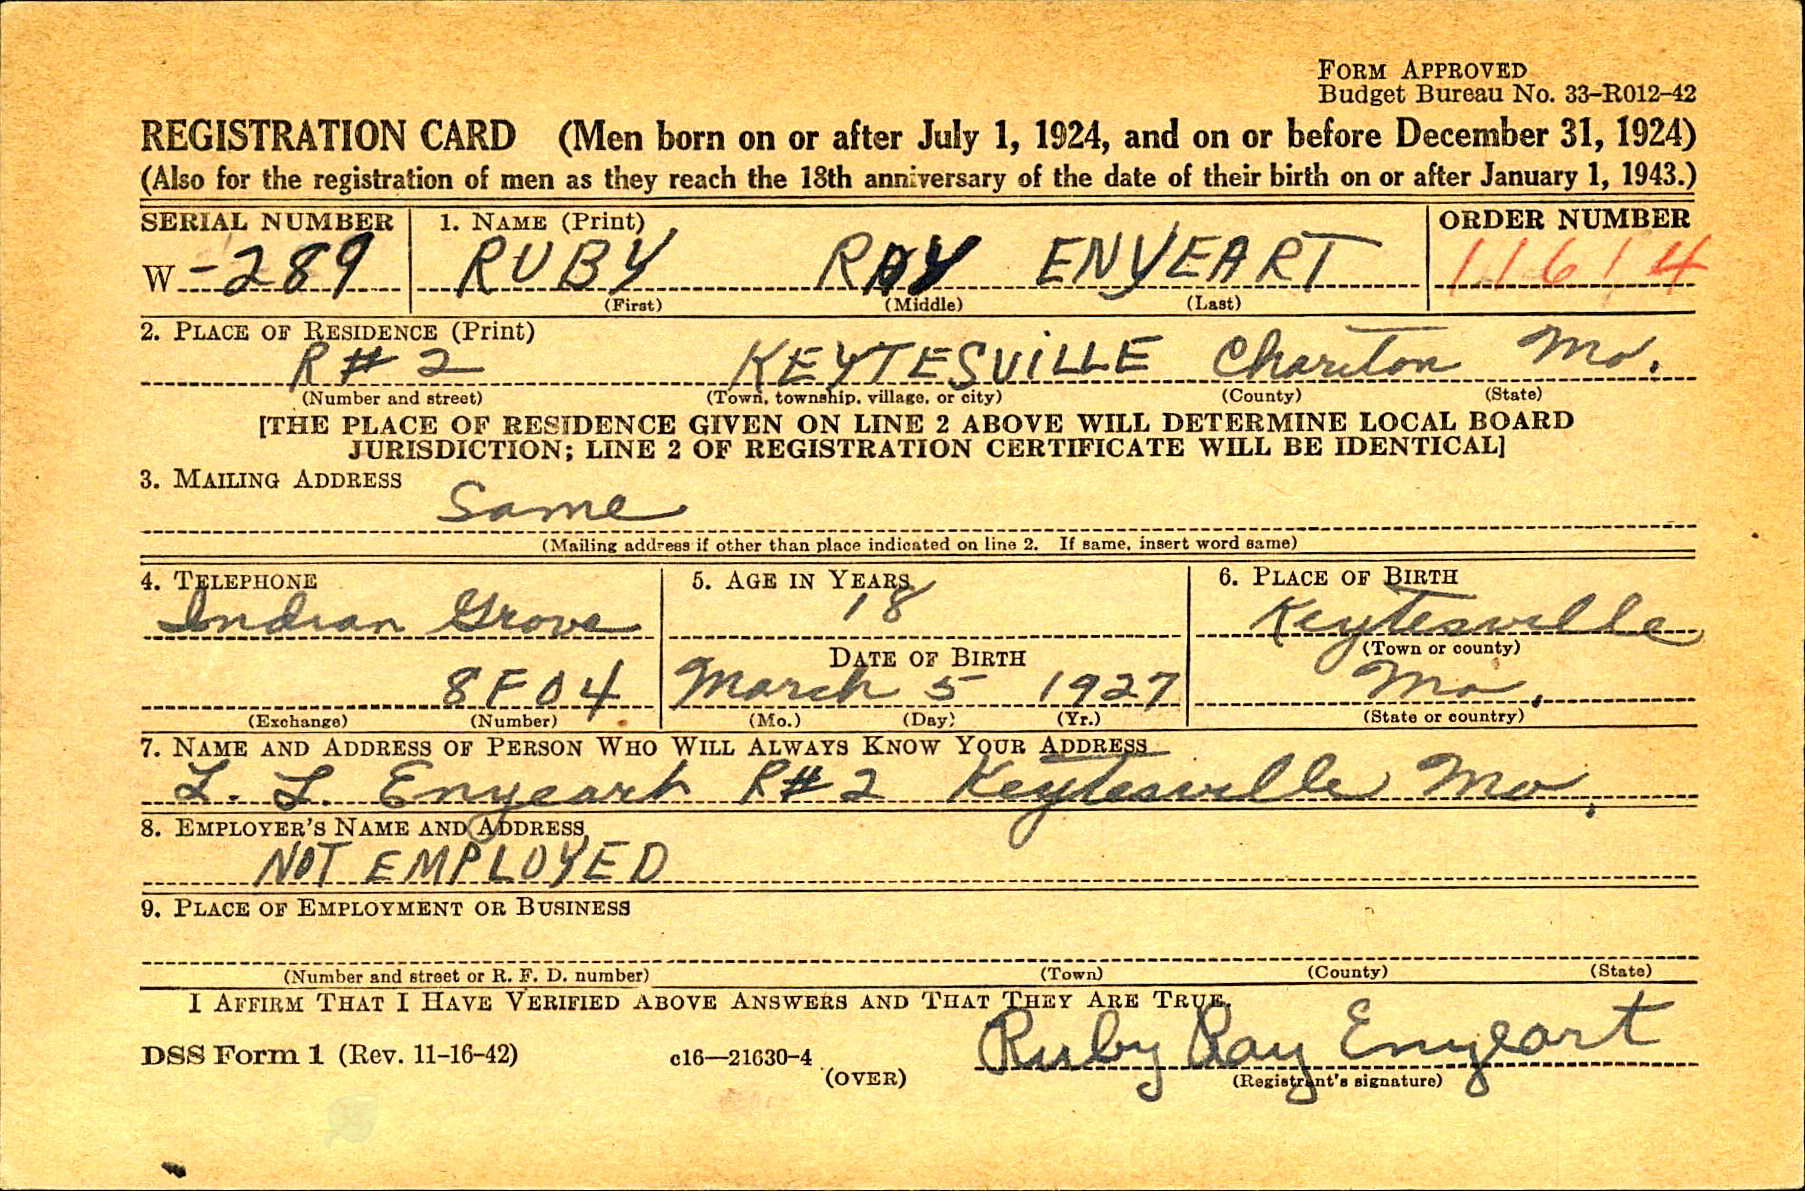 FORM APPROVED
Budget Bureau No. 33-R012-42
REGISTRATION CARD (Men born on or after July 1, 1924, and on or before December 31, 1924)
(Also for the registration of men as they reach the 18th anniversary of the date of their birth on or after January 1, 1943.)
SERIAL NUMBER 1. NAME (Print) ORDER NUMBER
W -289 RUBY RAY ENYEART 11614
(First) (Middle) (Last)
2. PLACE OF RESIDENCE (Print)
R#2 KEYTESViLLE Chariton Mo.
(Number and street) (Town, township, village, or city) (County) (State)
[THE PLACE OF RESIDENCE GIVEN ON LINE 2 ABOVE WILL DETERMINE LOCAL BOARD
JURISDICTION; LINE 2 OF REGISTRATION CERTIFICATE WILL BE IDENTICAL]
3. MAILING ADDRESS
Same
(Mailing address if other than place indicated on line 2. If same, insert word same)
4. TELEPHONE 5. AGE IN YEARS 6. PLACE OF BIRTH
Indian Grove 18 Keytesville
DATE OF BIRTH (Town or county)
8F04 March 5 1927 Mo.
(Exchange) (Number) (Mo.) (Day) (Yr.) (State or country)
7. NAME AND ADDRESS OF PERSON WHO WILL ALWAYS KNOW YOUR ADDRESS
L. L. Enyeart R#2 Keytesville Mo.
8. EMPLOYER'S NAME AND ADDRESS
NOT EMPLOYED
9. PLACE OF EMPLOYMENT OR BUSINESS
(Number and street or R. F. D. number) (Town) (County) (State)
I AFFIRM THAT I HAVE VERIFIED ABOVE ANSWERS AND THAT THEY ARE TRUE.
DSS Form 1 (Rev. 11-16-42) c16—21630-4 Ruby Ray Enyeart
(OVER) (Registrant's signature)